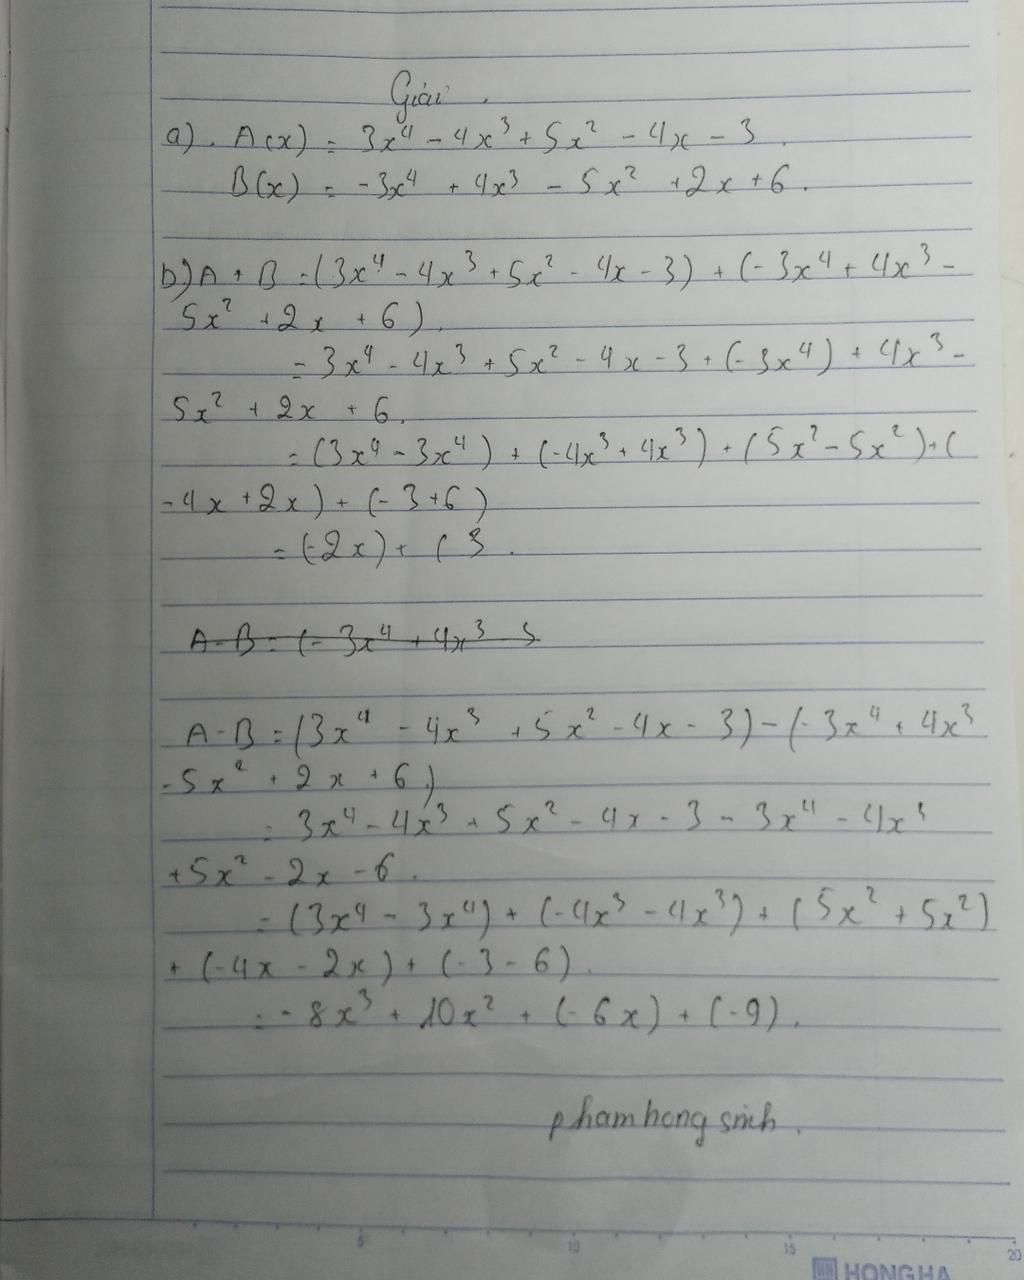 Giải.
a). A(x) = 3x⁴ - 4x³ + 5x² - 4x - 3.
B(x) = -3x⁴ + 4x³ - 5x² + 2x + 6.
b) A + B = (3x⁴ - 4x³ + 5x² - 4x - 3) + (-3x⁴ + 4x³ -
5x² + 2x + 6).
= 3x⁴ - 4x³ + 5x² - 4x - 3 + (-3x⁴) + 4x³ -
5x² + 2x + 6.
= (3x⁴ - 3x⁴) + (-4x³ + 4x³) + (5x² - 5x²) + (
-4x + 2x) + (-3 + 6)
= (-2x) + (3.
A-B = (-3x⁴ + 4x³ 5
A-B = (3x⁴ - 4x³ + 5x² - 4x - 3) - (-3x⁴ + 4x³
-5x² + 2x + 6)
= 3x⁴ - 4x³ + 5x² - 4x - 3 - 3x⁴ - 4x³
+5x² - 2x - 6.
= (3x⁴ - 3x⁴) + (-4x³ - 4x³) + (5x² + 5x²)
+ (-4x - 2x) + (-3 - 6).
= -8x³ + 10x² + (-6x) + (-9).
pham hong sinh.
5 10 15 20
HONG HA